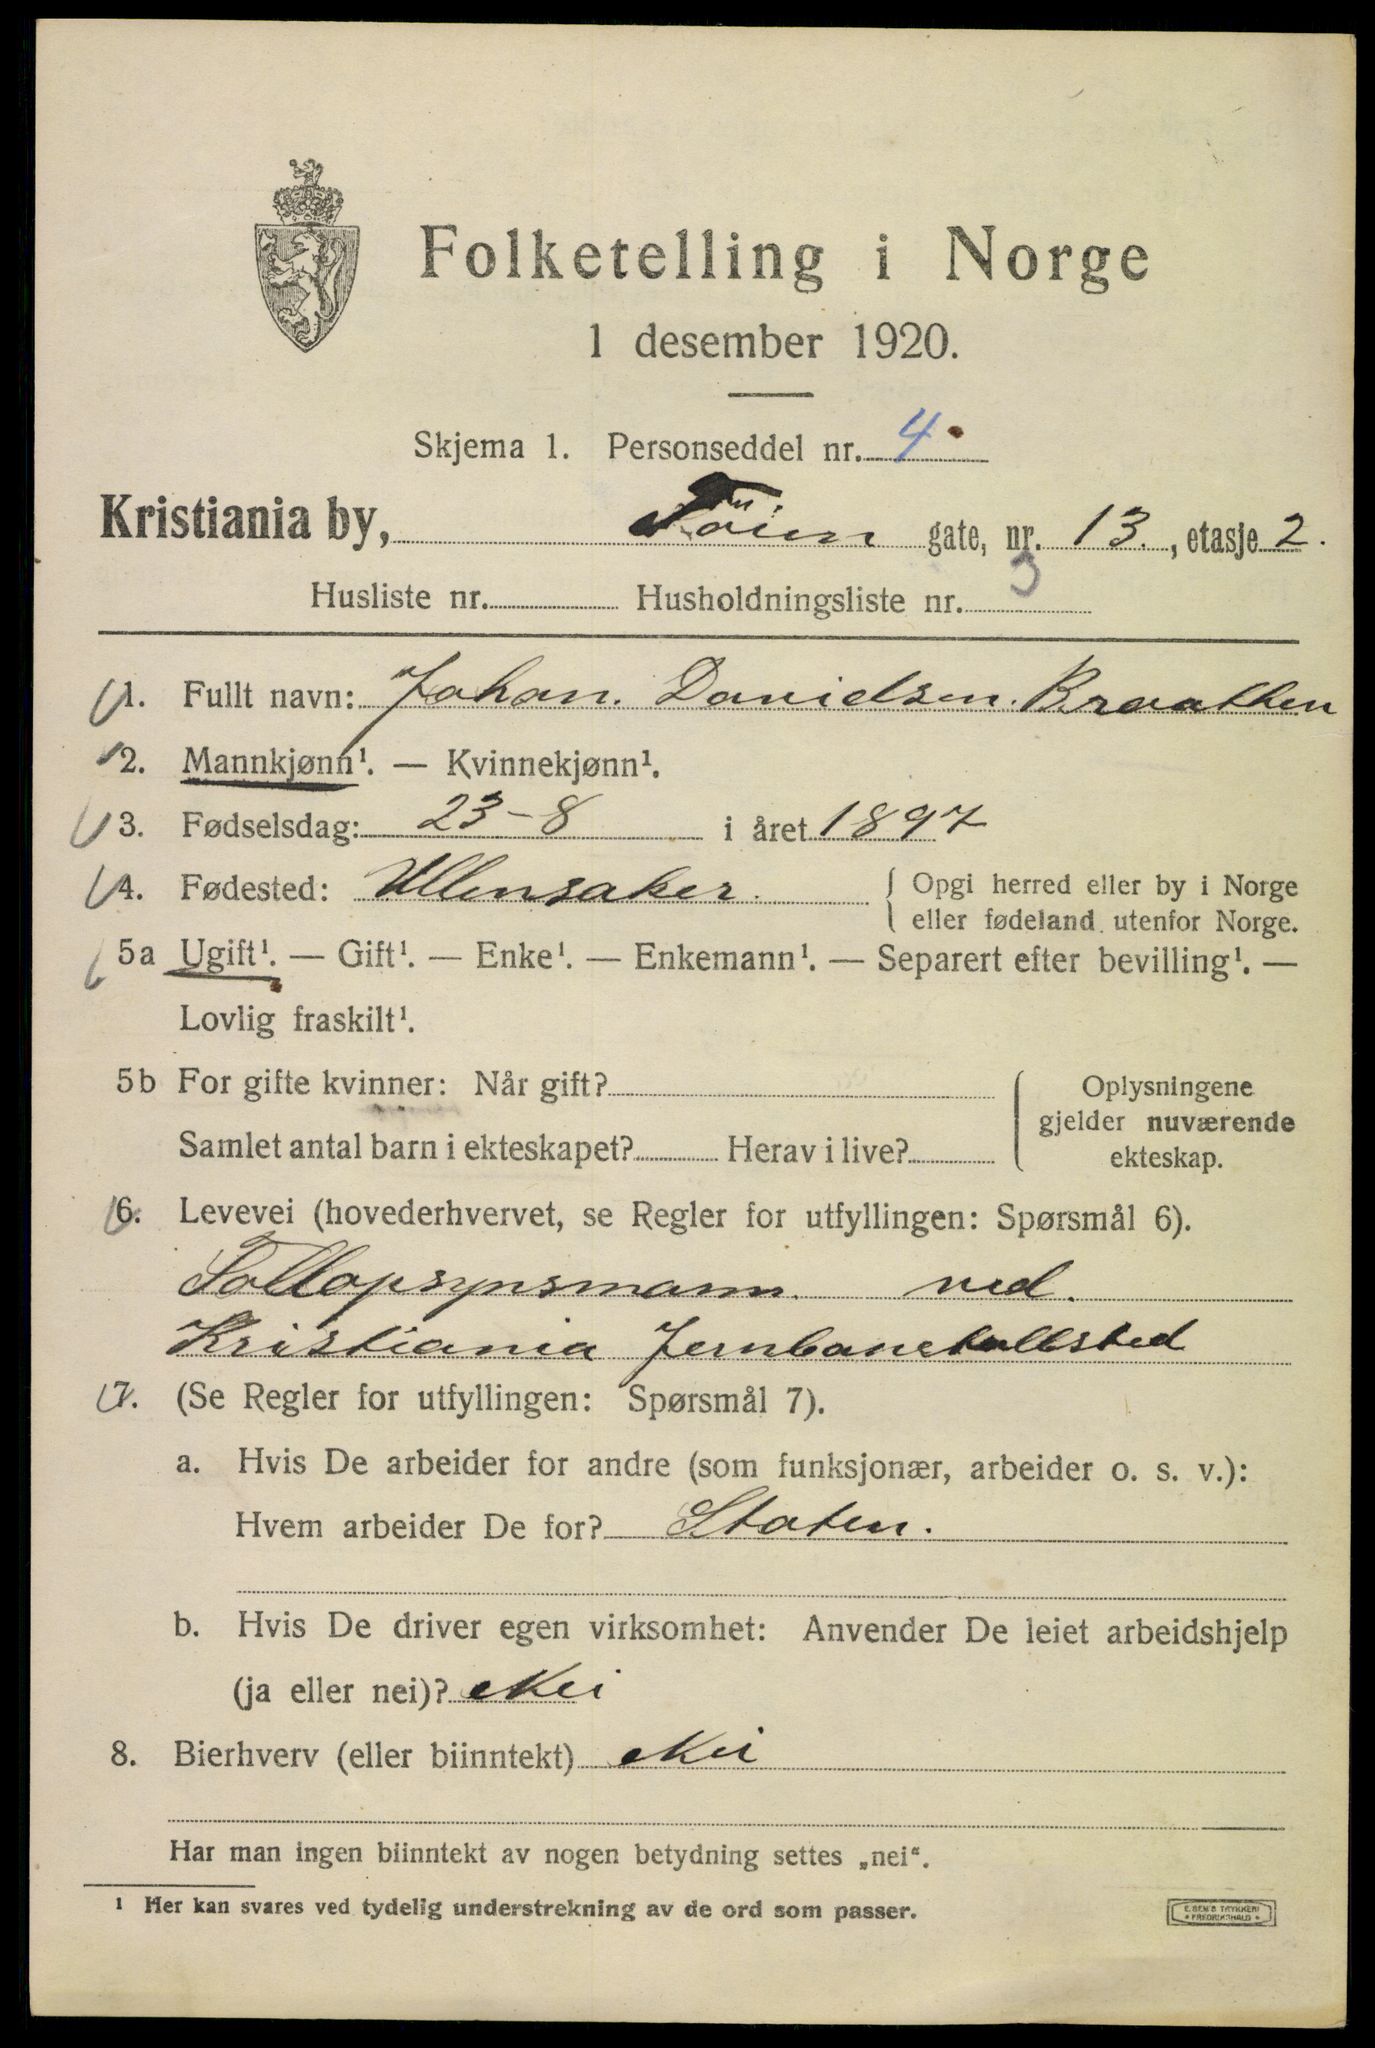 Folketelling i Norge
1 desember 1920.
Skjema 1. Personseddel nr. 4.
Kristiania by, Töien gate, nr. 13., etasje 2.
Husliste nr. Husholdningsliste nr. 3
1. Fullt navn: Johan. Davidsen. Braathen
2. Mannkjønn¹. — Kvinnekjønn¹.
3. Fødselsdag: 23-8 i året 1897
4. Fødested: Ullensaker. { Opgi herred eller by i Norge
eller fødeland utenfor Norge.
5a Ugift¹. — Gift¹. — Enke¹. — Enkemann¹. — Separert efter bevilling¹. —
Lovlig fraskilt¹.
5b For gifte kvinner: Når gift? { Oplysningene
gjelder nuværende
Samlet antal barn i ekteskapet? Herav i live?
ekteskap.
6. Levevei (hovederhvervet, se Regler for utfyllingen: Spørsmål 6).
Tollopsynsmann. ved.
Kristiania Jernbanetollsted
7. (Se Regler for utfyllingen: Spørsmål 7).
a. Hvis De arbeider for andre (som funksjonær, arbeider o. s. v.):
Hvem arbeider De for? Staten.
b. Hvis De driver egen virksomhet: Anvender De leiet arbeidshjelp
(ja eller nei)? Nei
8. Bierhverv (eller biinntekt) Nei
Har man ingen biinntekt av nogen betydning settes „nei“.
¹ Her kan svares ved tydelig understrekning av de ord som passer.
E. SEM'S TRYKKERI
• FREDRIKSHALD •